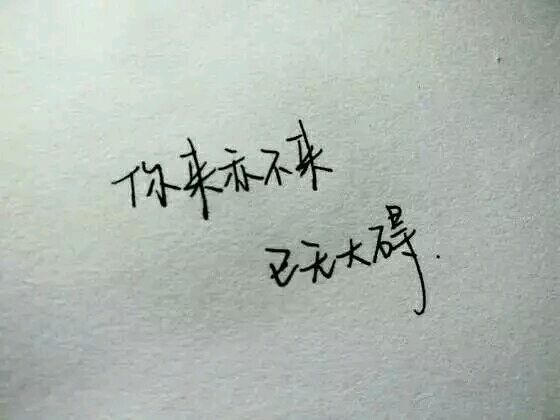 你来亦不来
已无大碍.